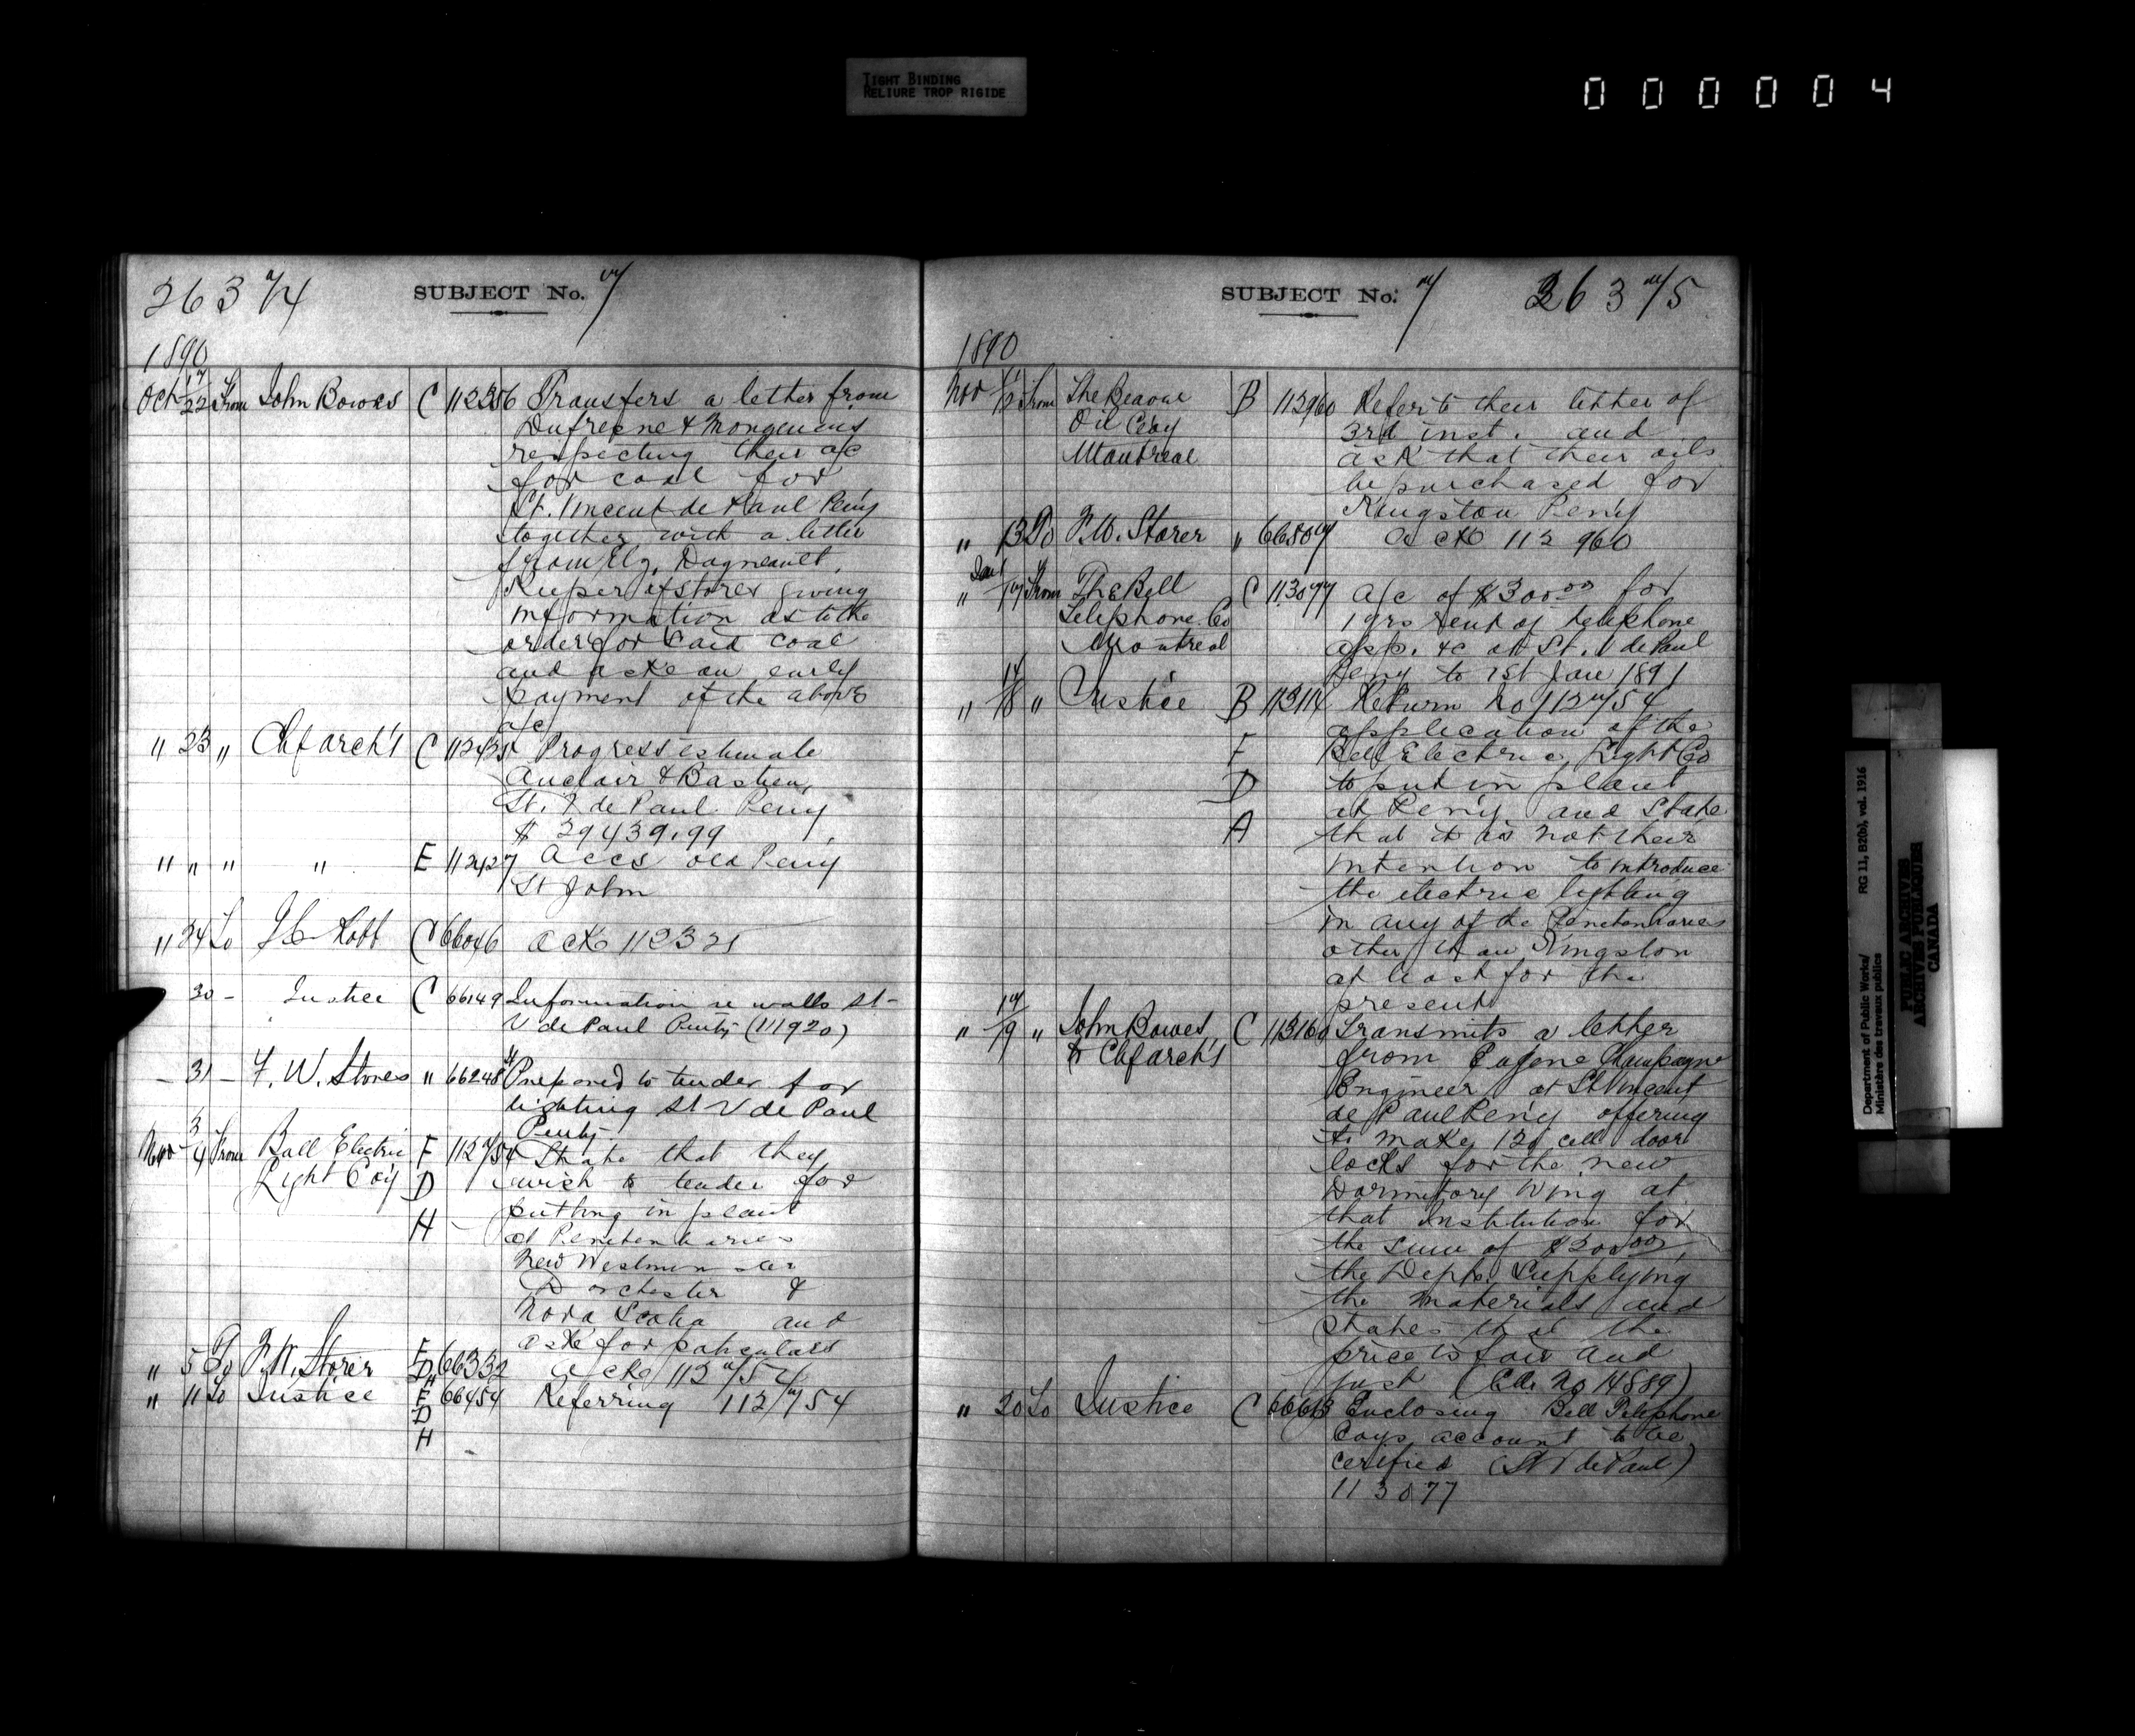 TIGHT BINDING
RELIURE TROP RIGIDE
000004
263 7/4
SUBJECT No. 7
1890
Oct 17/22 From John Bowes C 112356 Transfers a letter from
Dufresne & Mongenais
respecting their a/c
for coal for
St. Vincent de Paul Peny
together with a letter
from Dagneault,
Keeper of stores giving
information as to the
order for said coal
and asks an early
payment of the above
a/c
" 23 " Chf arch't C 112425 Progress estimate
Auclair & Bastien,
St. V de Paul Peny
$ 29439.99
" " " " E 112427 Accs old Peny
St John
" 24 To Robb C 66046 ack 112321
30 - Justice C 66149 Information re walls St-
V de Paul Penty (111920)
- 31 - F. W. Storer " 66248 Prepared to tender for
lighting St V de Paul
Penty
Nov 3/4 From Ball Electric F 112754 State that they
Light Coy D wish to tender for
H - putting in plant
at Penitentiaries
New Westminster
Dorchester &
Nova Scotia and
ask for particulars
" 5 To F. W. Storer F D H 66332 ack 112754
" 11 To Justice F 66454 Referring 112754
D
H
SUBJECT No. 7
263 7/5
1890
Nov From The Beaver B 112960 Refer to their letter of
Oil Coy 3rd inst. and
Montreal ask that their oils
be purchased for
Kingston Peny
" 13 To F. W. Storer " 66507 ack 112 960
" 17 From The Bell C 113077 a/c of $300.00 for
Telephone Co 1 yrs rent of telephone
Montreal app. &c at St. V de Paul
Peny to 1st Jan 1891
" 17/18 " Justice B 113114 Return No 112754
application of the
F Ball Electric Light Co
D to put in plant
at Peny and state
A that it is not their
intention to introduce
the electric lighting
in any of the Penitentiaries
other than Kingston
at least for the
present
" 17/19 " John Bowes, C 113160 Transmits a letter
Chf arch't from Eugene Champagne
Engineer at St Vincent
de Paul Peny offering
to make 120 cell door
locks for the new
Dormitory Wing at
that institution for
the sum of $300.00,
the Dept. supplying
the materials and
states that the
price is fair and
just (No 14889)
" 20 To Justice C 66613 Enclosing Bell Telephone
Coys account to be
certified (St V de Paul)
113077
Department of Public Works/ RG 11, B2(b), vol. 1916
Ministère des travaux publics
PUBLIC ARCHIVES
ARCHIVES PUBLIQUES
CANADA